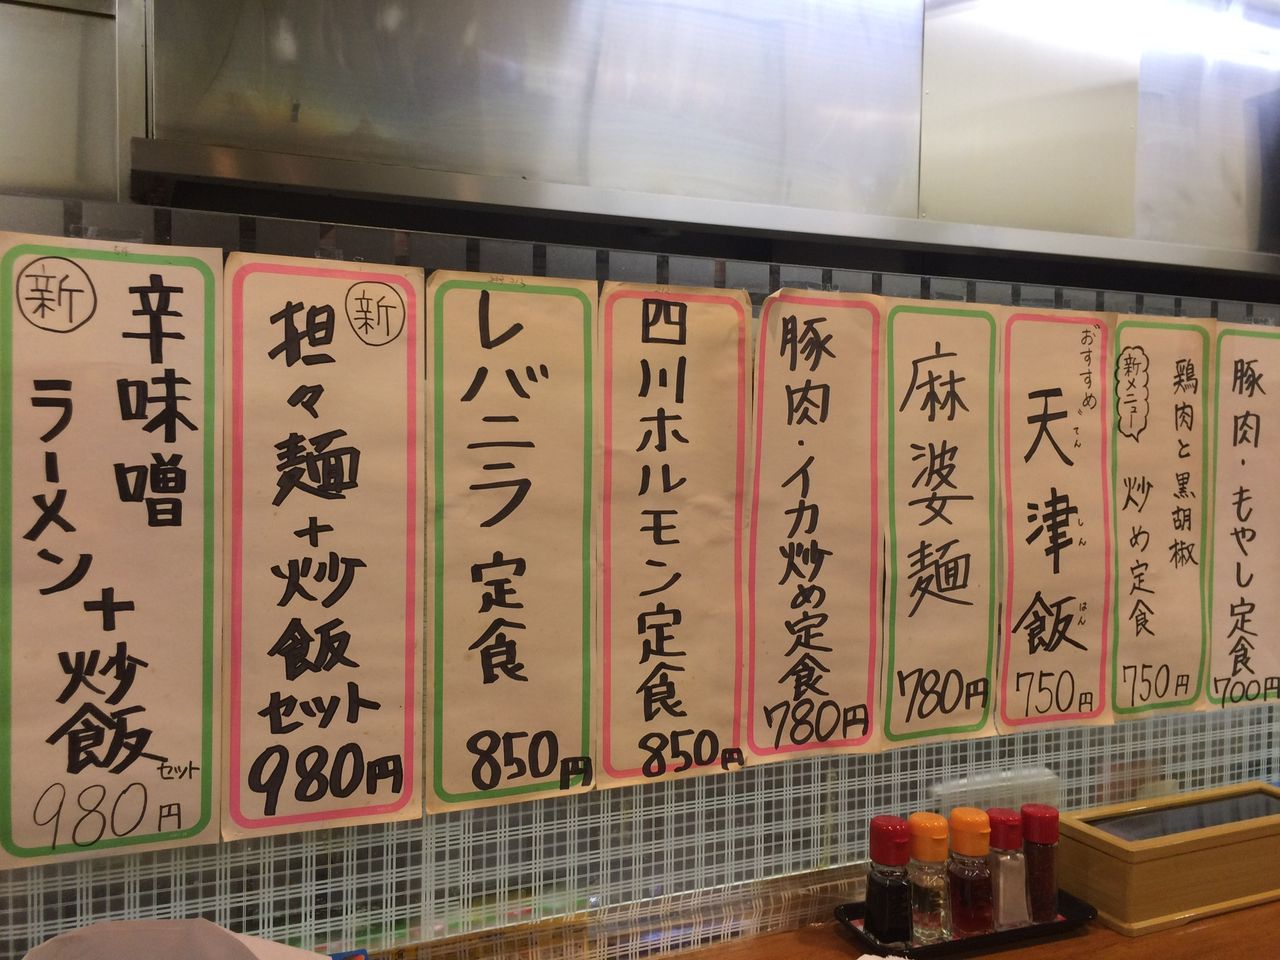 新
辛味噌
ラーメン
+炒飯
セット
980円
新
担々麺+炒飯
セット
980円
レバニラ定食
850円
四川ホルモン定食
850円
豚肉・イカ炒め定食
780円
麻婆麺
780円
おすすめ
天津飯
てんしんはん
750円
新メニュー
鶏肉と黒胡椒
炒め定食
750円
豚肉・もやし定食
700円